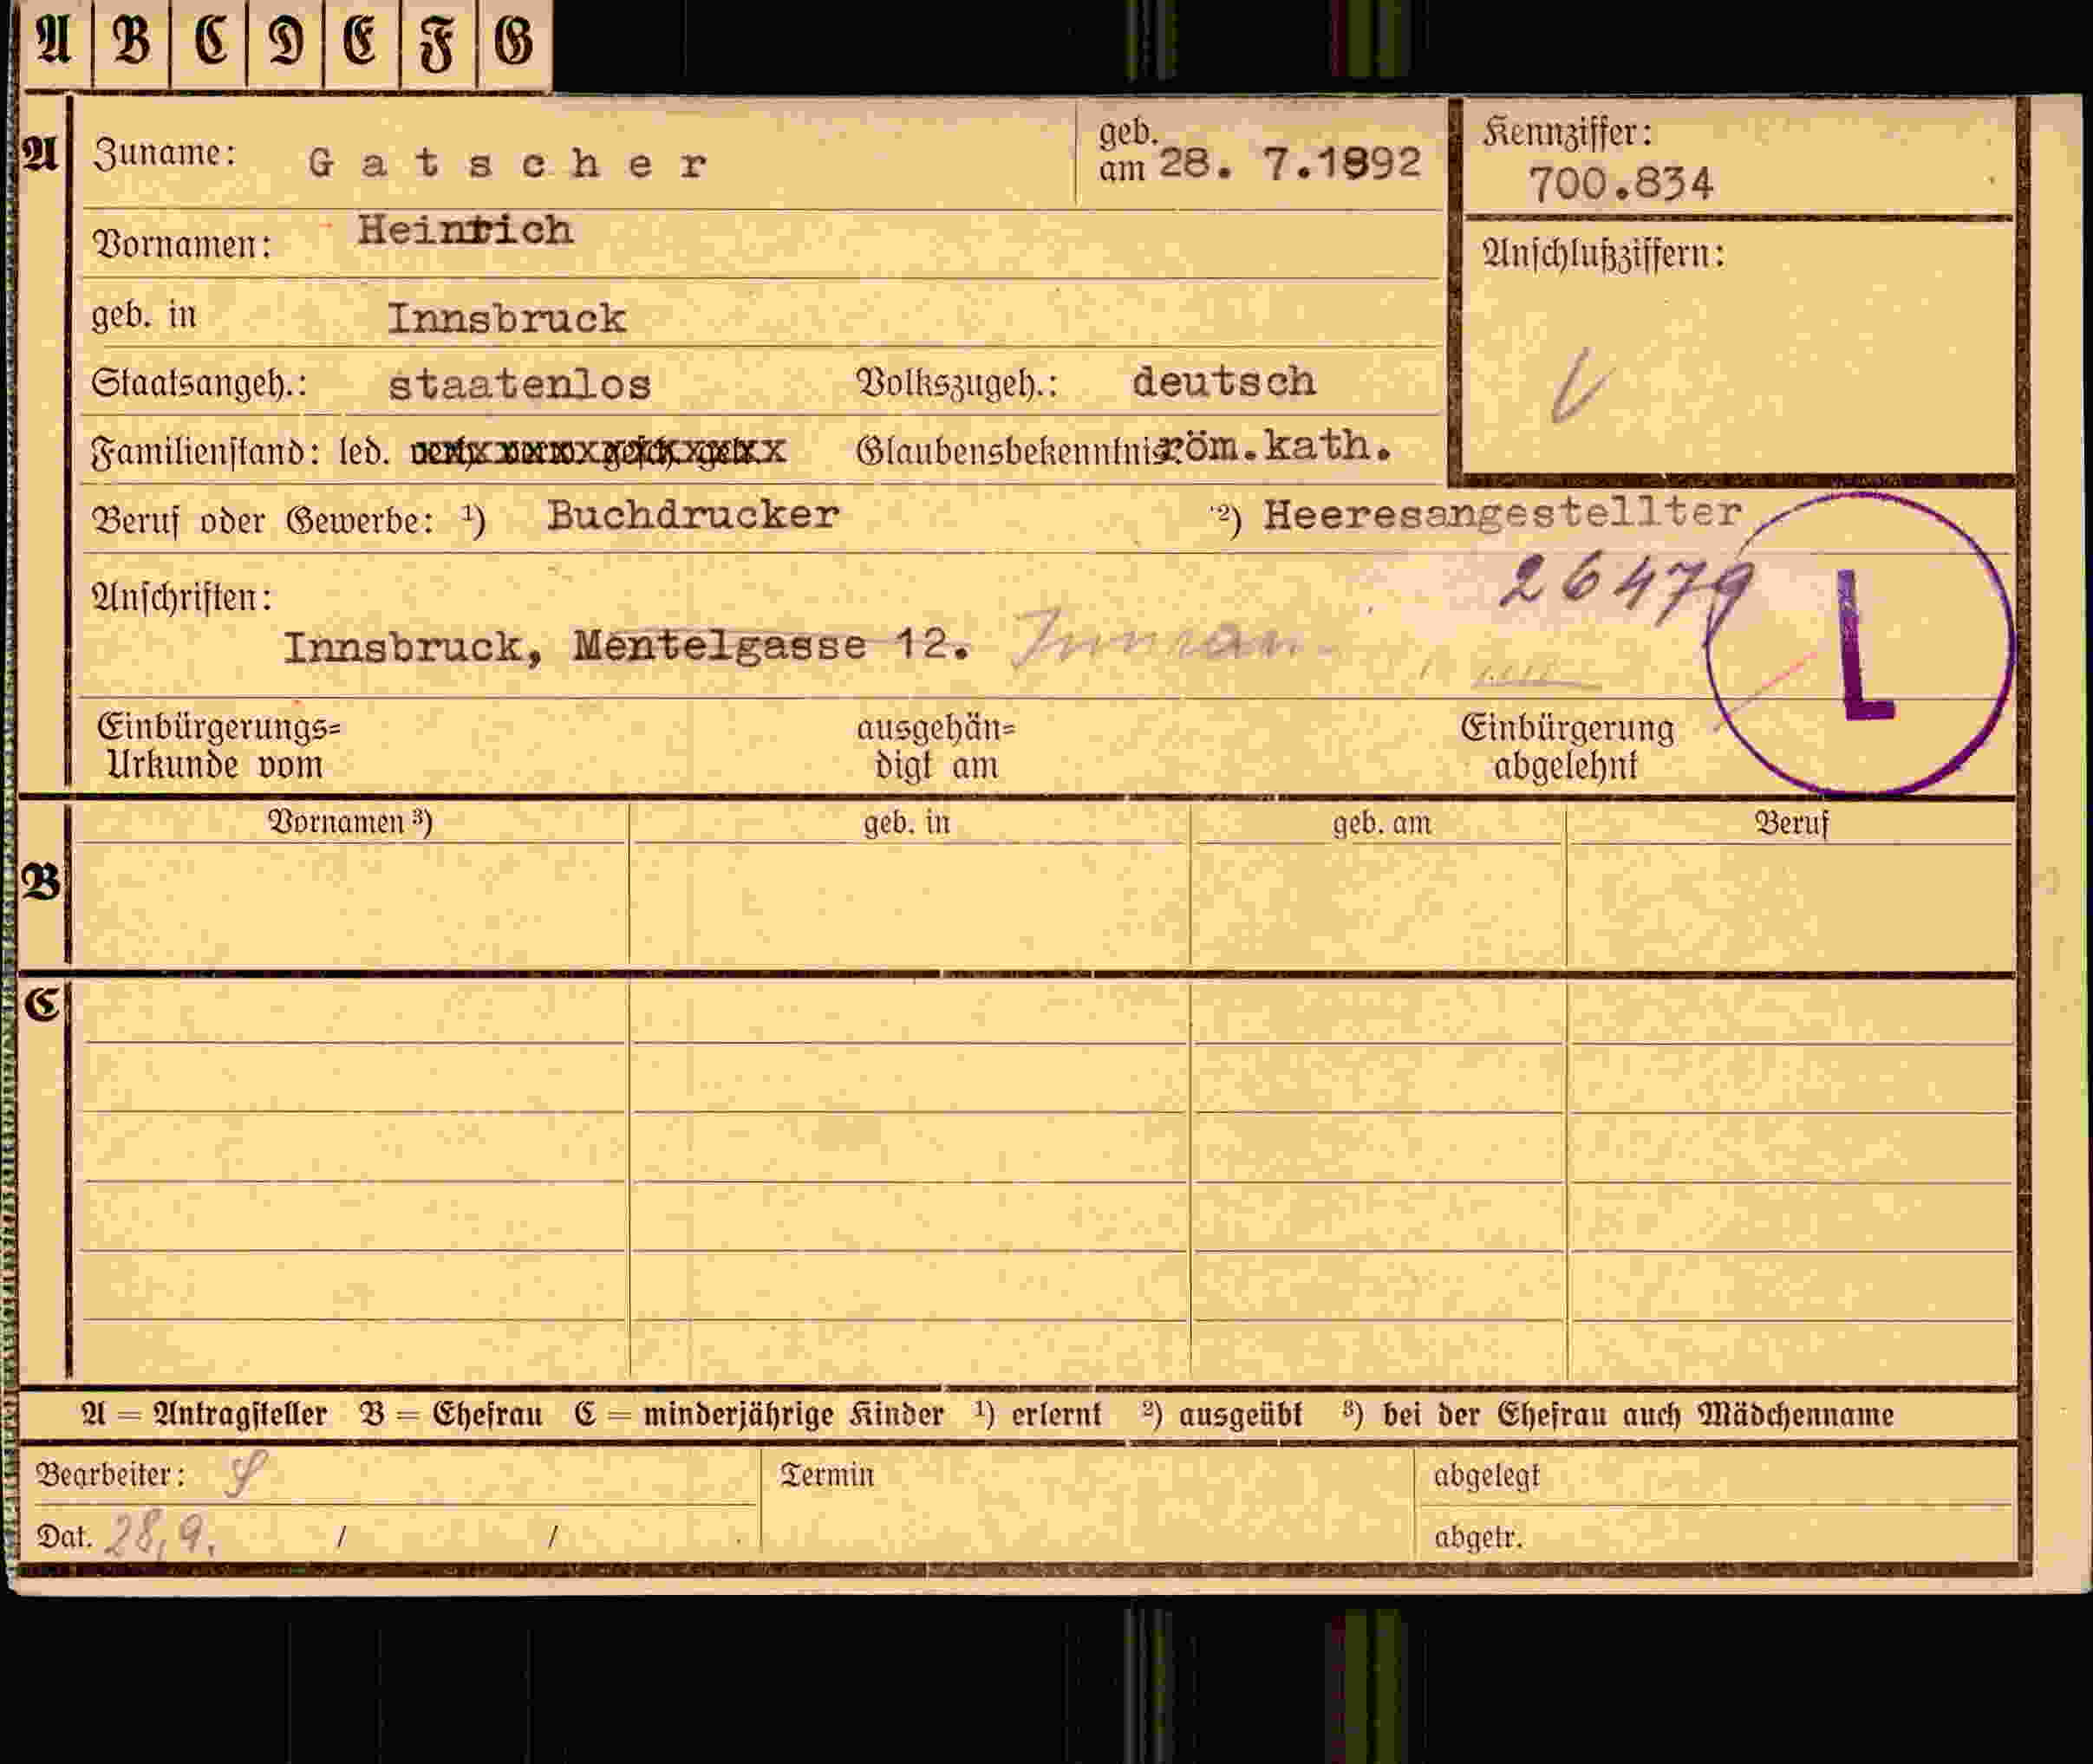 A B C D E F G
A Zuname: Gatscher geb. am 28. 7.1892 Kennziffer: 700.834
Vornamen: Heinrich Anschlußziffern:
geb. in Innsbruck
Staatsangeh.: staatenlos Volkszugeh.: deutsch
Familienstand: led. verh. verw. gesch. getr. Glaubensbekenntnis: röm.kath.
Beruf oder Gewerbe: ¹) Buchdrucker ²) Heeresangestellter
26479
Anschriften:
Innsbruck, Mentelgasse 12.
L
Einbürgerungs= Urkunde vom ausgehän= digt am Einbürgerung abgelehnt
B Vornamen ³) geb. in geb. am Beruf
C
A = Antragsteller B = Ehefrau C = minderjährige Kinder ¹) erlernt ²) ausgeübt ³) bei der Ehefrau auch Mädchenname
Bearbeiter: Termin abgelegt
Dat. 28,9. / / abgetr.